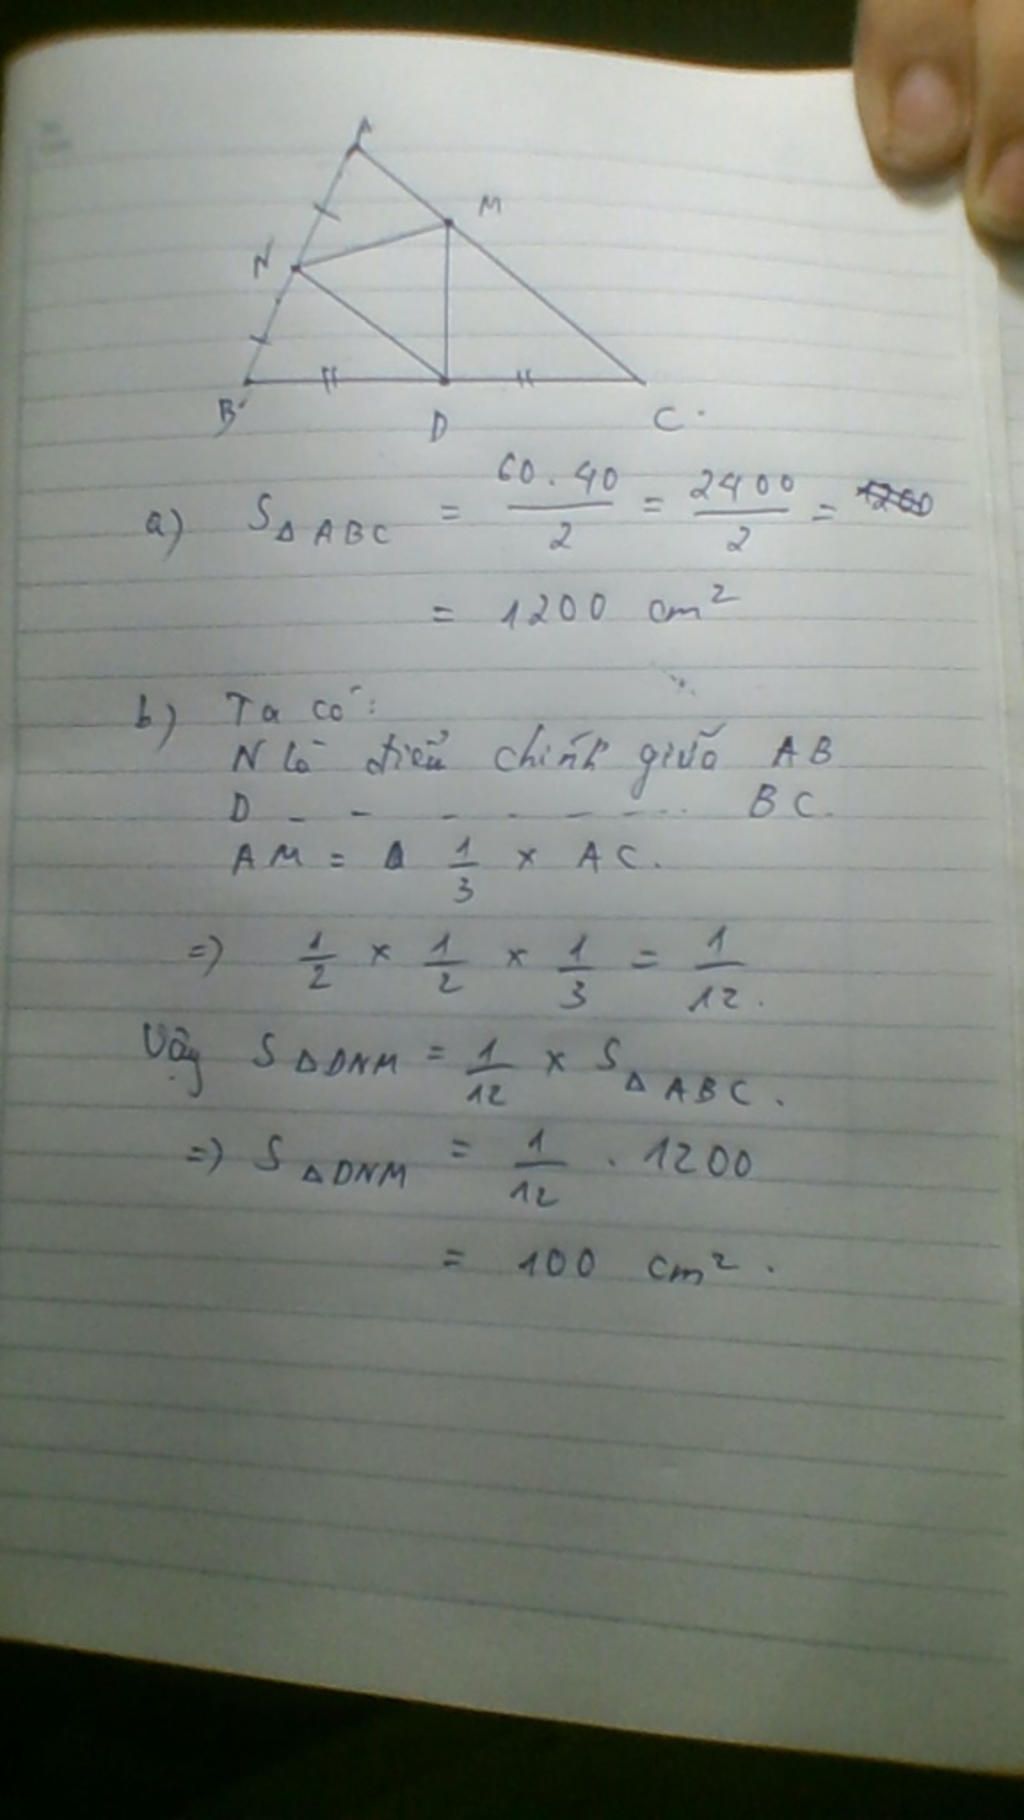 A
M
N
B
D
C
a) S△ABC = 60.40/2 = 2400/2 =
= 1200 cm²
b) Ta có:
N là điểm chính giữa AB
D _ _ _ _ _ ... BC.
AM = 1/3 × AC.
=) 1/2 × 1/2 × 1/3 = 1/12.
Vậy S△DNM = 1/12 × S△ABC.
=) S△DNM = 1/12 . 1200
= 100 cm².